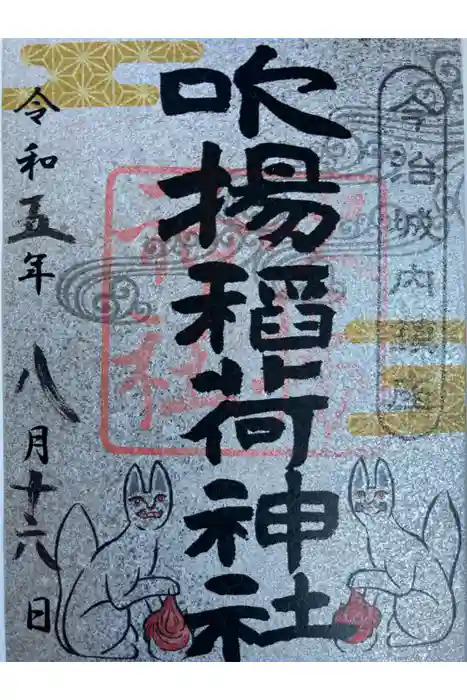 今治城内鎮座
吹揚稲荷神社
令和五年 八月十六日